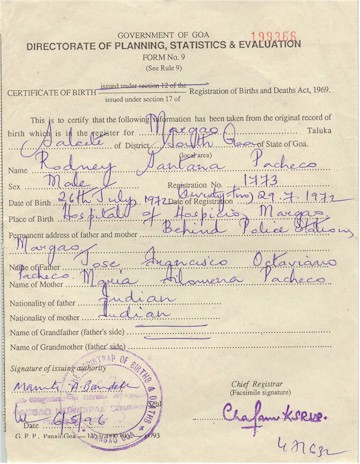 199366
GOVERNMENT OF GOA
DIRECTORATE OF PLANNING, STATISTICS & EVALUATION
FORM No. 9
(See Rule 9)
issued under section 12 of the
CERTIFICATE OF BIRTH Registration of Births and Deaths Act, 1969.
issued under section 17 of
This is to certify that the following information has been taken from the original record of
birth which is in the register for Margao Taluka
Salcete of District South Goa of State of Goa.
(local area)
Rodney Santana Pacheco
Sex Male Registration No. 1773
Date of Birth 26th July, 1972 Date of Registration 29.7.1972
Place of Birth Hospital of Hospicio, Margao
Permanent address of father and mother Behind Police Station,
Margao
Name of Father Jose Francisco Octaviano
Pacheco
Name of Mother Maria Filomena Pacheco
Nationality of father Indian
Nationality of mother Indian
Name of Grandfather (father's side)
Name of Grandmother (father side)
Signature of issuing authority
REGISTRAR OF BIRTHS & DEATHS
Chief Registrar
(Facsimile signature)
Date 6/5/96
G. P. P., Panaji-Goa